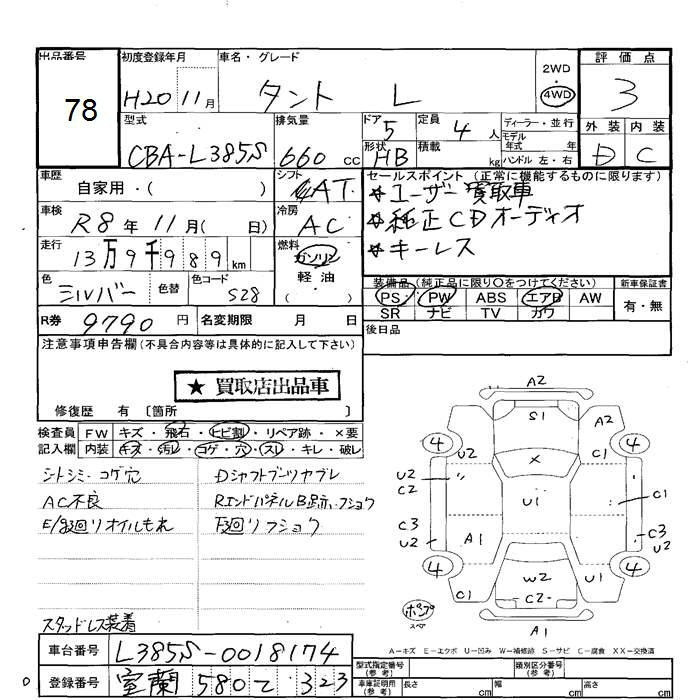 出品番号
78
初度登録年月
H20 11月
車名・グレード
タント L
2WD
4WD
評価点
3
外装 内装
D C
型式
CBA-L385S
排気量
660 cc
ドア
5
形状
HB
定員
4 人
積載
kg
ディーラー・並行
モデル
年式 年
ハンドル 左・右
車歴
自家用・( )
シフト
AT
セールスポイント (正常に機能するものに限ります)
*ユーザー買取車
*純正CDオーディオ
*キーレス
車検
R8年 11月( 日)
冷房
AC
走行
13万9千989 km
燃料
ガソリン
軽油
( )
色
シルバー
色替
色コード
S28
装備品 (純正品に限り○をつけてください)
PS PW ABS エアB AW
SR ナビ TV カワ
新車保証書
有・無
R券 9790 円 名変期限 月 日
後日品
注意事項申告欄 (不具合内容等は具体的に記入して下さい)
★ 買取店出品車
修復歴 有 〔箇所 〕
検査員
記入欄
FW キズ・飛石・ヒビ割・リペア跡・×要
内装 キズ・汚レ・コゲ・穴・スレ・キレ・破レ
シトシミ・コゲ穴
AC不良
E/G廻リオイルもれ
スタッドレス装着
Dシャフトブーツヤブレ
RエンドパネルB跡・フショク
下廻リフショク
A2
S1
A2
4
4
U2
C1
X
U2
C2
U1
C1
C3
U2
A1
C3
U2
4
4
W2
U1
C1
C2
A1
ポンプ
スペア
A-キズ E-エクボ U-凹み W-補修跡 S-サビ C-腐食 XX-交換済
車台番号 L385S-0018174
登録番号 室蘭 580 て 323
型式指定番号
(参考)
類別区分番号
(参考)
車庫証明用
(参考)
長さ cm 幅 cm 高さ cm